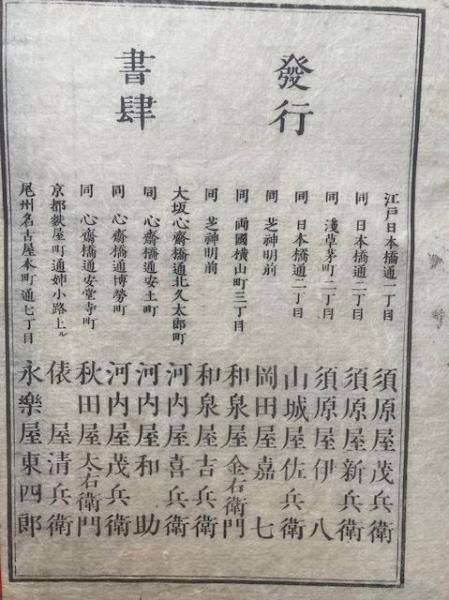 發行
書肆
江戸日本橋通一丁目 須原屋茂兵衛
同 日本橋通二丁目 須原屋新兵衛
同 淺草茅町二丁目 須原屋伊八
同 日本橋通二丁目 山城屋佐兵衛
同 芝神明前 岡田屋嘉七
同 両國横山町三丁目 和泉屋金右衛門
同 芝神明前 和泉屋吉兵衛
大坂心齋橋通北久太郎町 河内屋喜兵衛
同 心齋橋通安土町 河内屋和助
同 心齋橋通博勞町 河内屋茂兵衛
同 心齋橋通安堂寺町 秋田屋太右衛門
京都麩屋町通姉小路上ル 俵屋清兵衛
尾州名古屋本町通七丁目 永樂屋東四郎